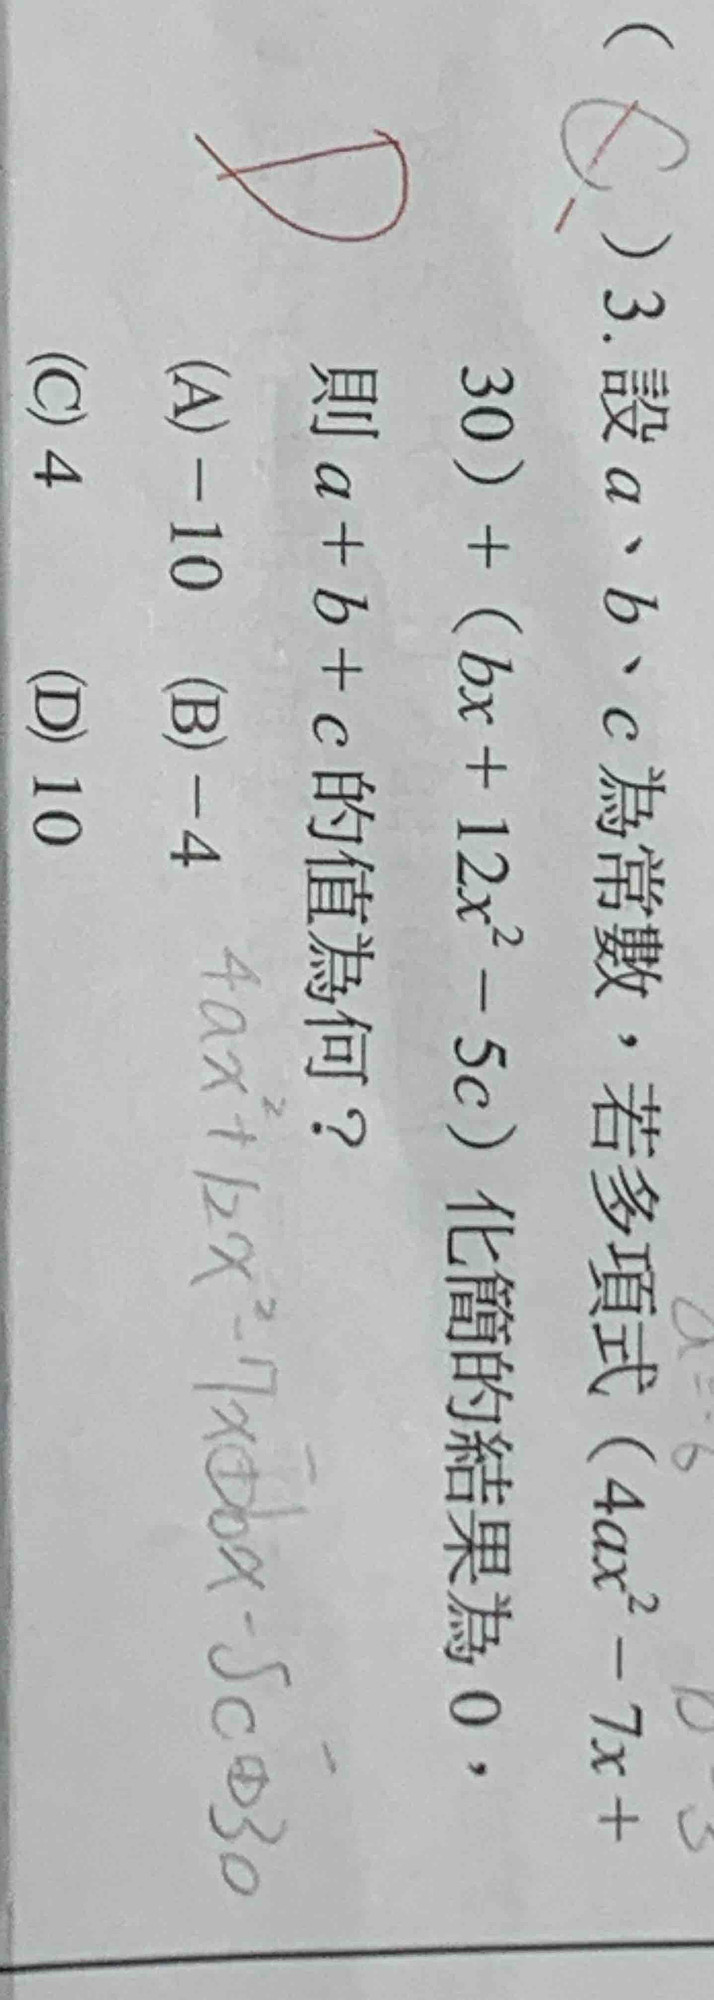 ( C ) 3. 設 a、b、c 為常數，若多項式（4ax² − 7x +
30）+（bx + 12x² − 5c）化簡的結果為 0，
則 a + b + c 的值為何？
D
(A) −10 (B) −4
(C) 4 (D) 10
4ax²+12x²-7x+bx-5c+30